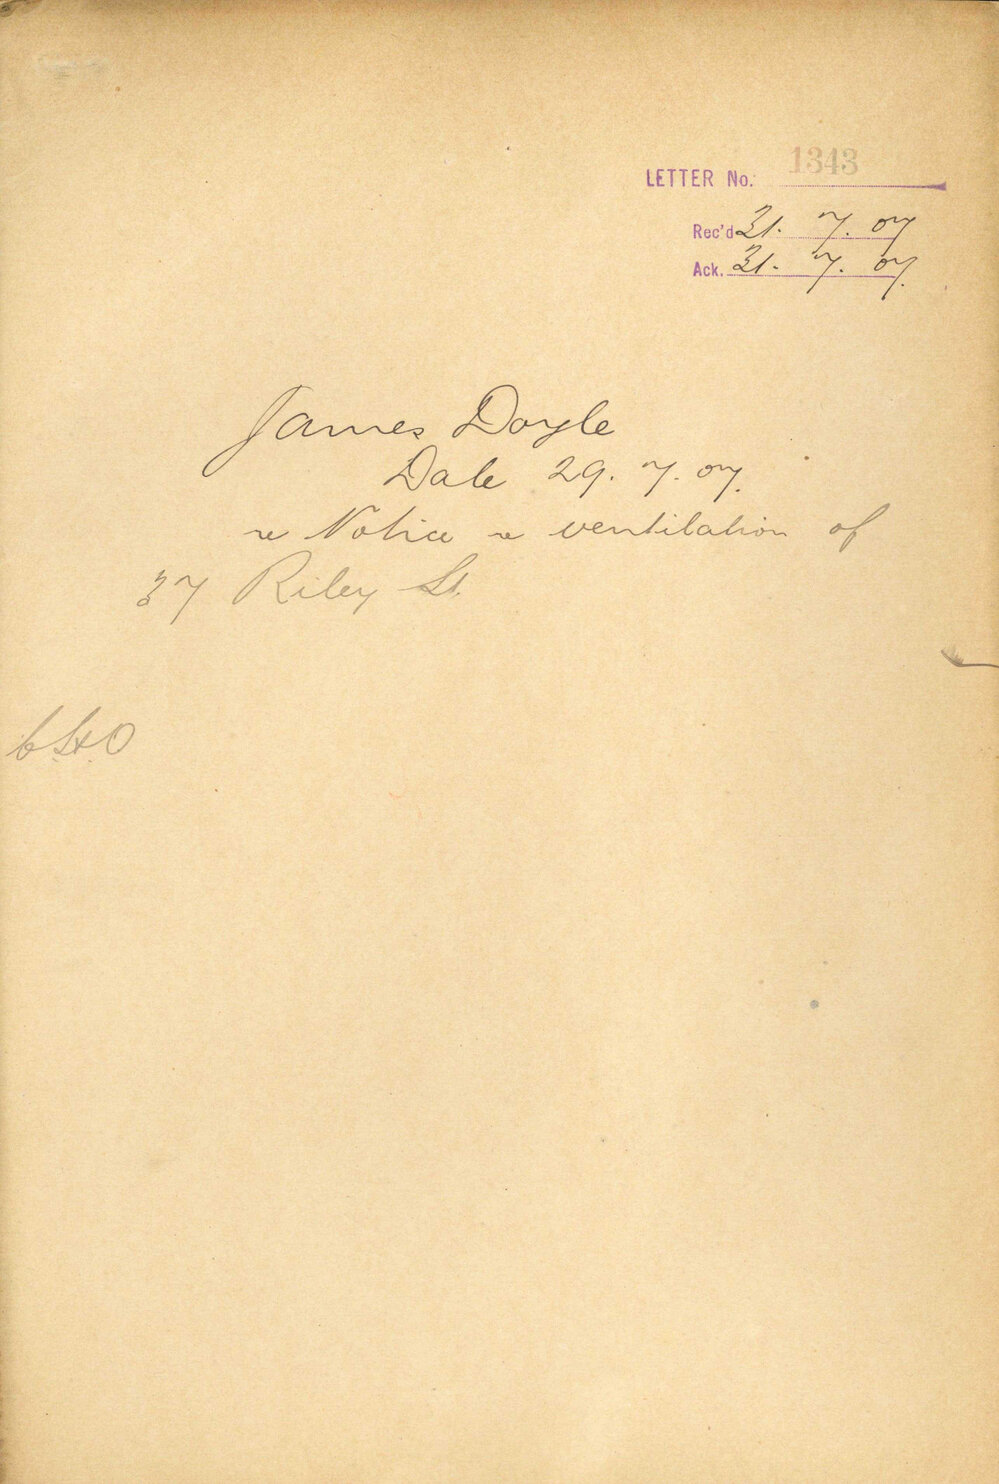 LETTER No. 1343
Rec'd 31. 7. 07
Ack. 31. 7. 07.
James Doyle
Date 29. 7. 07.
re Notice re ventilation of
37 Riley St.